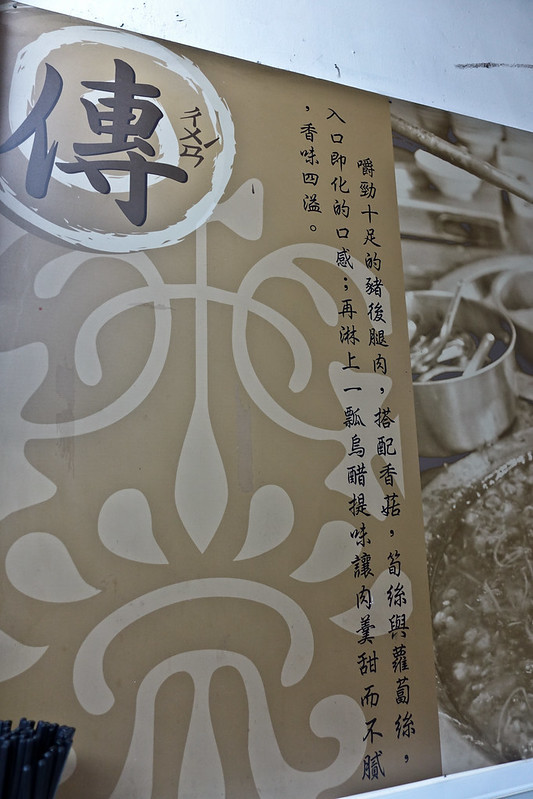 傳
ㄔㄨㄢˊ
嚼勁十足的豬後腿肉，搭配香菇，筍絲與蘿蔔絲，
入口即化的口感；再淋上一瓢烏醋提味讓肉羹甜而不膩
，香味四溢。